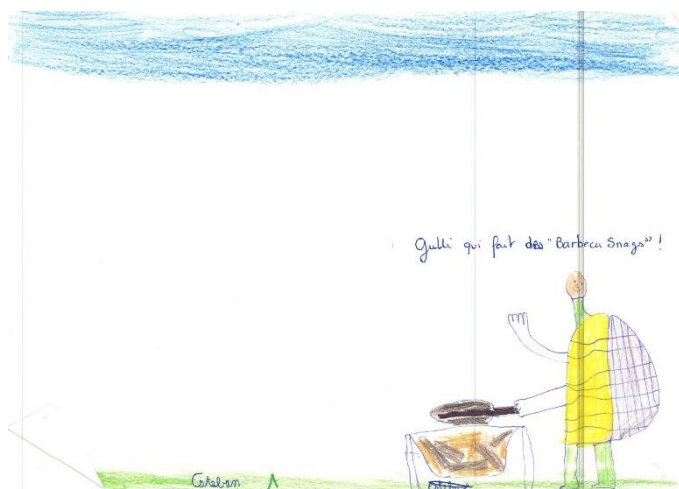 Gulli qui fait des "Barbecu Snags" !
Esteban